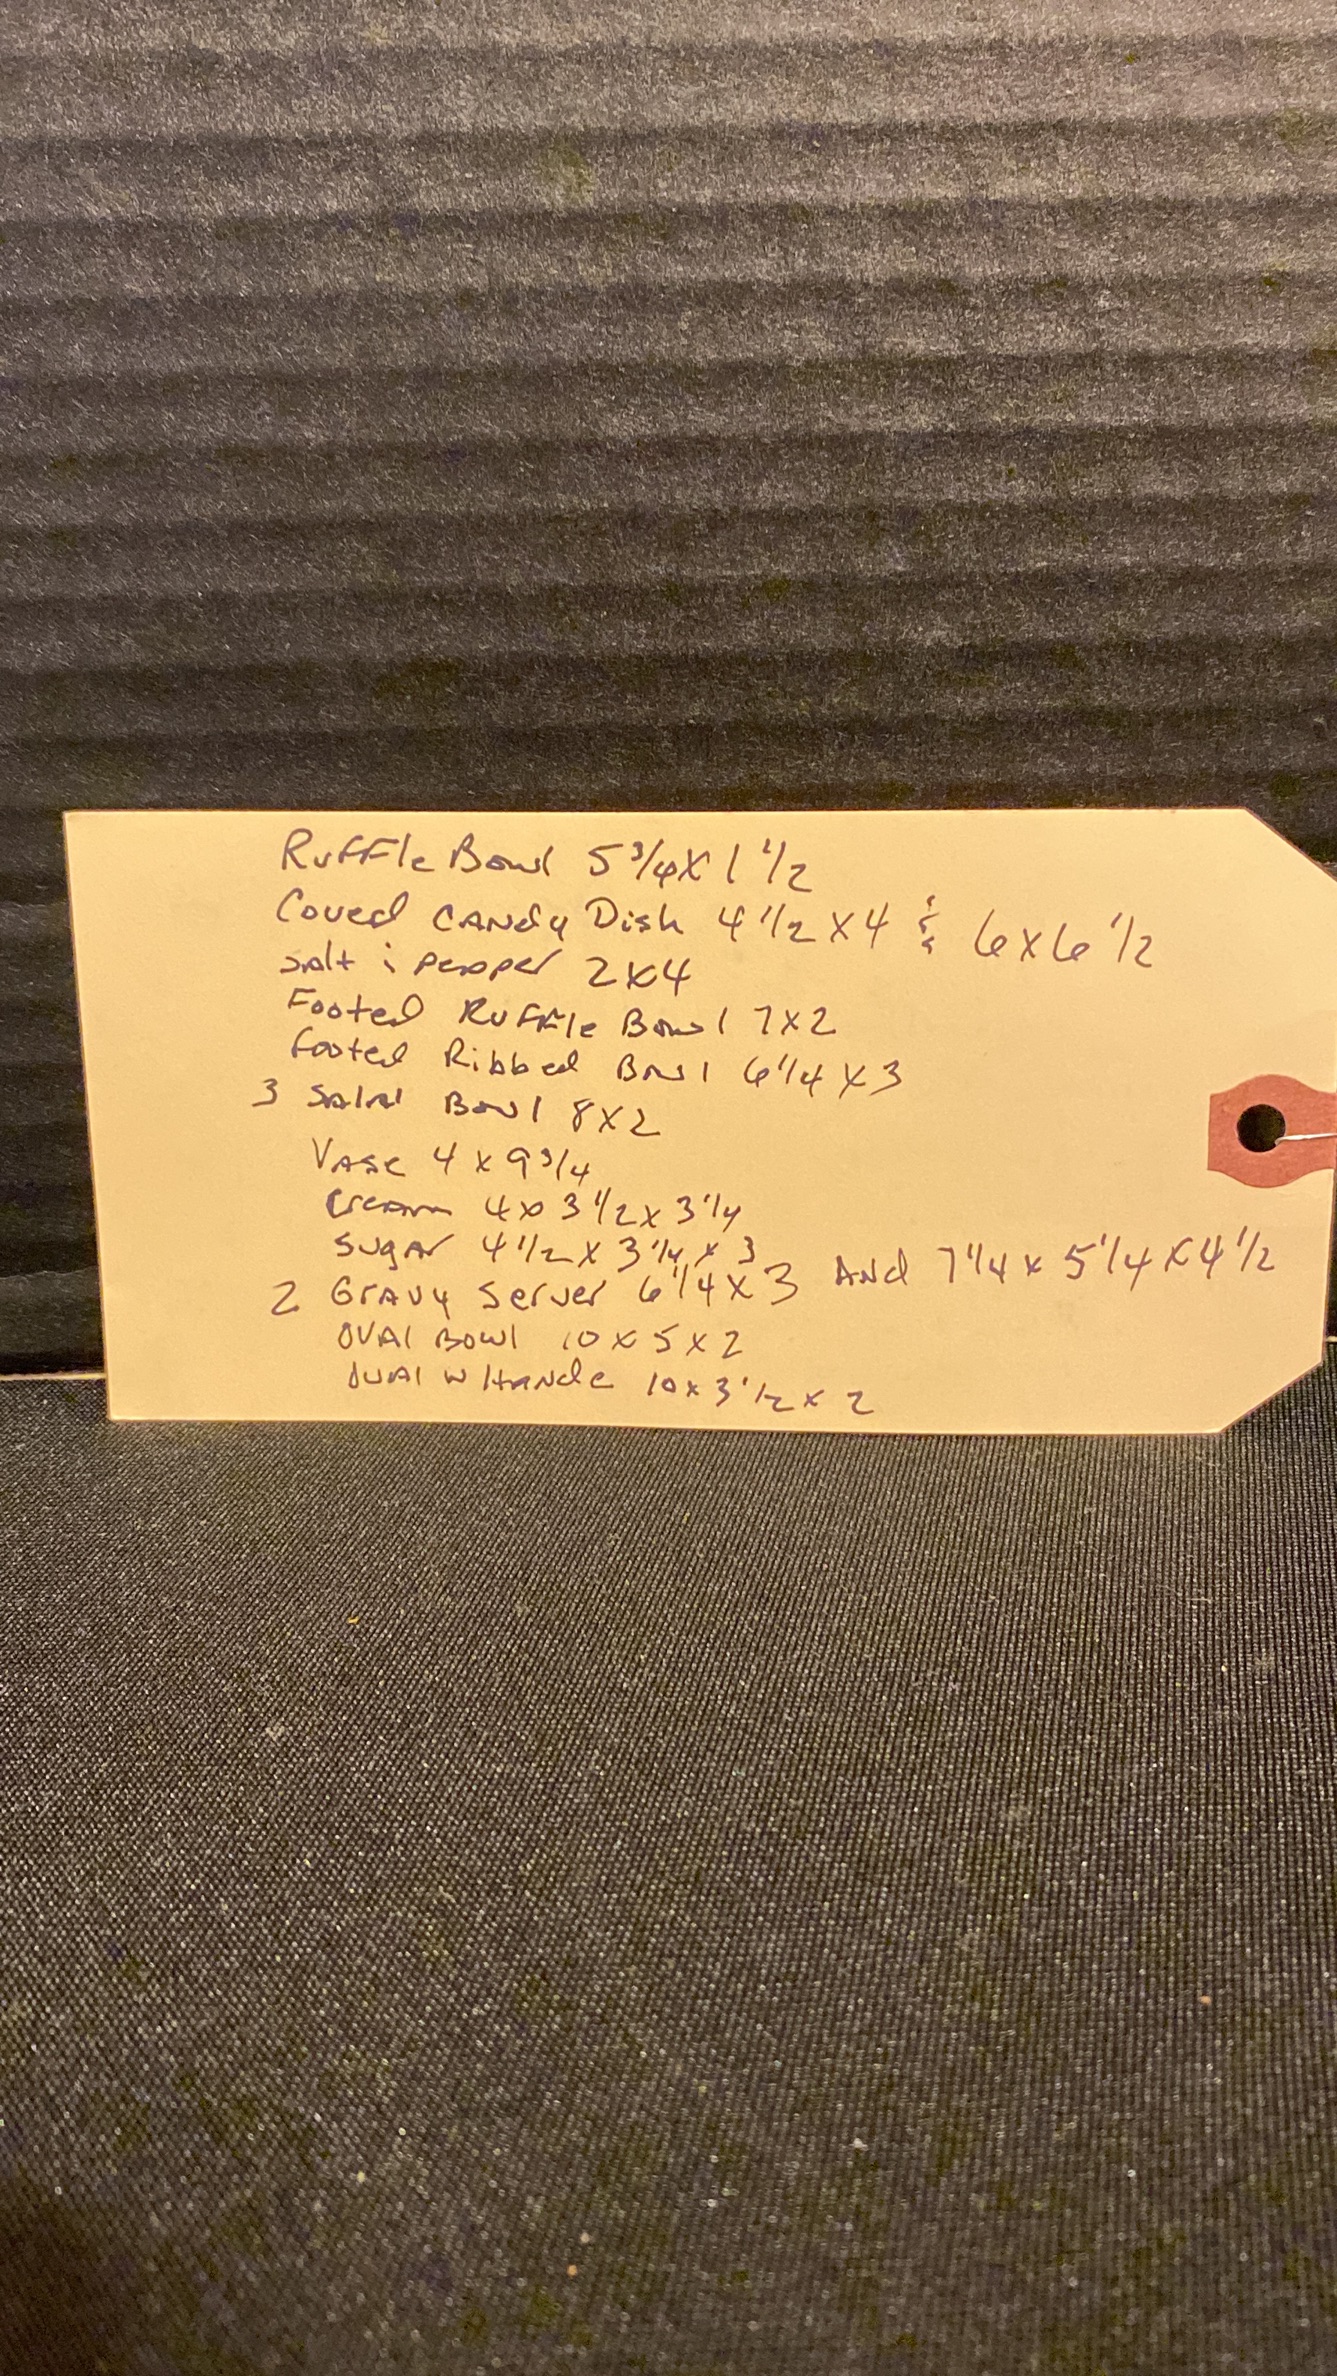 Ruffle Bowl 5 3/4 X 1 1/2
Coved CANDY Dish 4 1/2 X 4 & 6 X 6 1/2
Salt & pepper 2X4
Footed Ruffle Bowl 7X2
footed Ribbed Bowl 6 1/4 X 3
3 Salad Bowl 8X2
VASE 4 X 9 3/4
Cream 4 X 3 1/2 X 3 1/4
Sugar 4 1/2 X 3 1/4 X 3
2 GRAVY Server 6 1/4 X 3 AND 7 1/4 X 5 1/4 X 4 1/2
OVAl Bowl 10 X 5 X 2
OVAl W HANdle 10 X 3 1/2 X 2